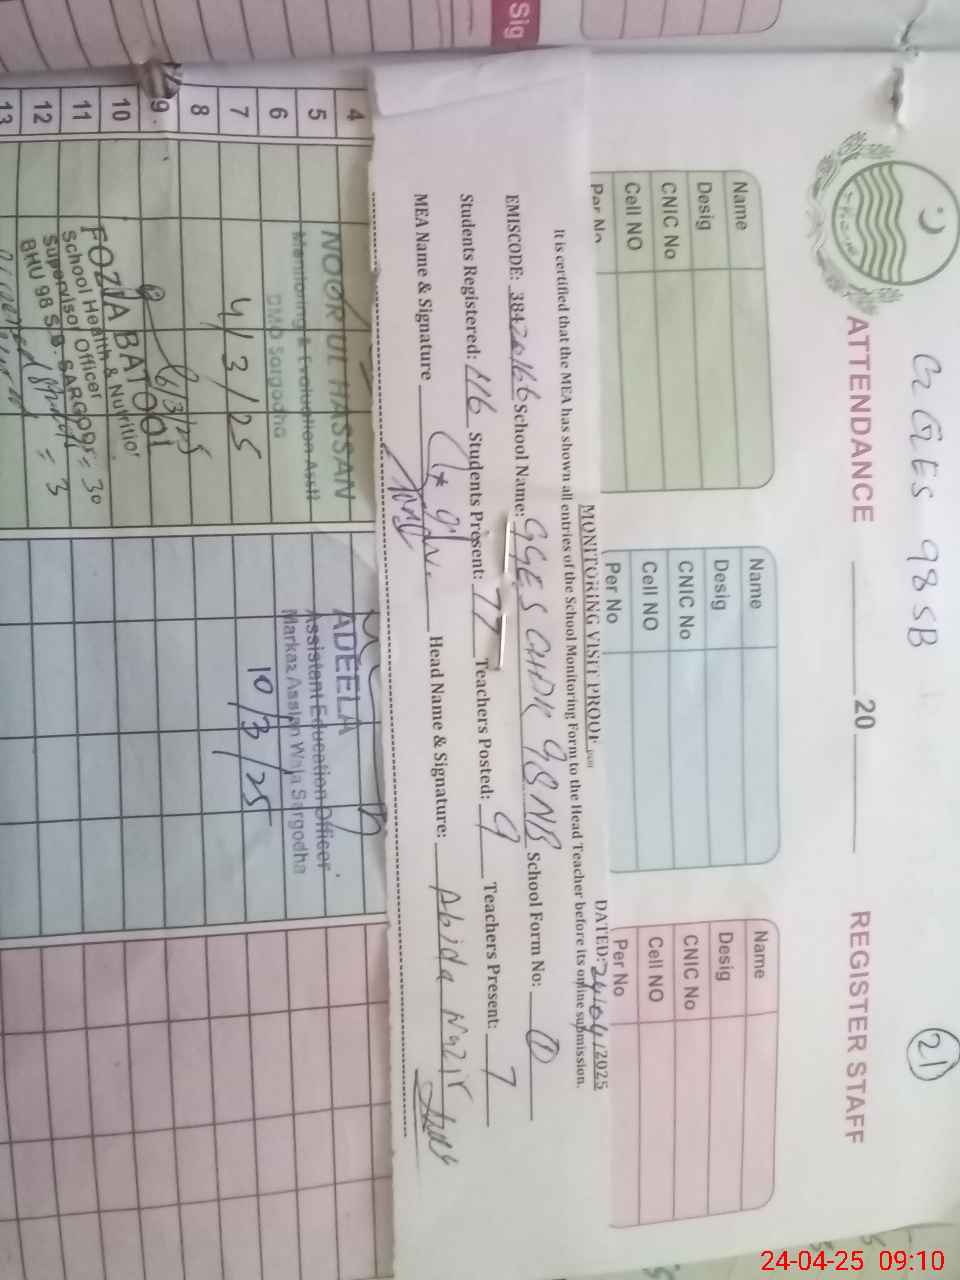 Sig
GGES 98 SB
21
ATTENDANCE ______ 20 ______ REGISTER STAFF
Name
Desig
CNIC No
Cell NO
Per No
Name
Desig
CNIC No
Cell NO
Per No
Name
Desig
CNIC No
Cell NO
Per No
MONITORING VISIT PROOF
DATED: 24/04/2025
It is certified that the MEA has shown all entries of the School Monitoring Form to the Head Teacher before its online submission.
EMISCODE: 38420166 School Name: GGES CHAK 98 NB School Form No: 1
Students Registered: 116 Students Present: 77 Teachers Posted: 9 Teachers Present: 7
MEA Name & Signature Head Name & Signature: Abida Nazir
4
5
6
7
8
9
10
11
12
13
NOOR UL HASSAN
Monitoring & Evaluation Asstt
DMO Sargodha
4/3/25
FOZIA BATOOL
School Health & Nutrition
Supervisor Officer
BHU 98 S.B. SARGODHA
= 30
= 3
ADEELA
Assistent Education Officer
Markaz Asslan Wala Sargodha
10/3/25
24-04-25 09:10